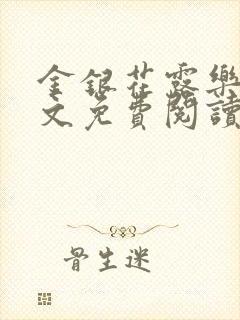 金銀花露樂
文免費閱讀
骨生迷